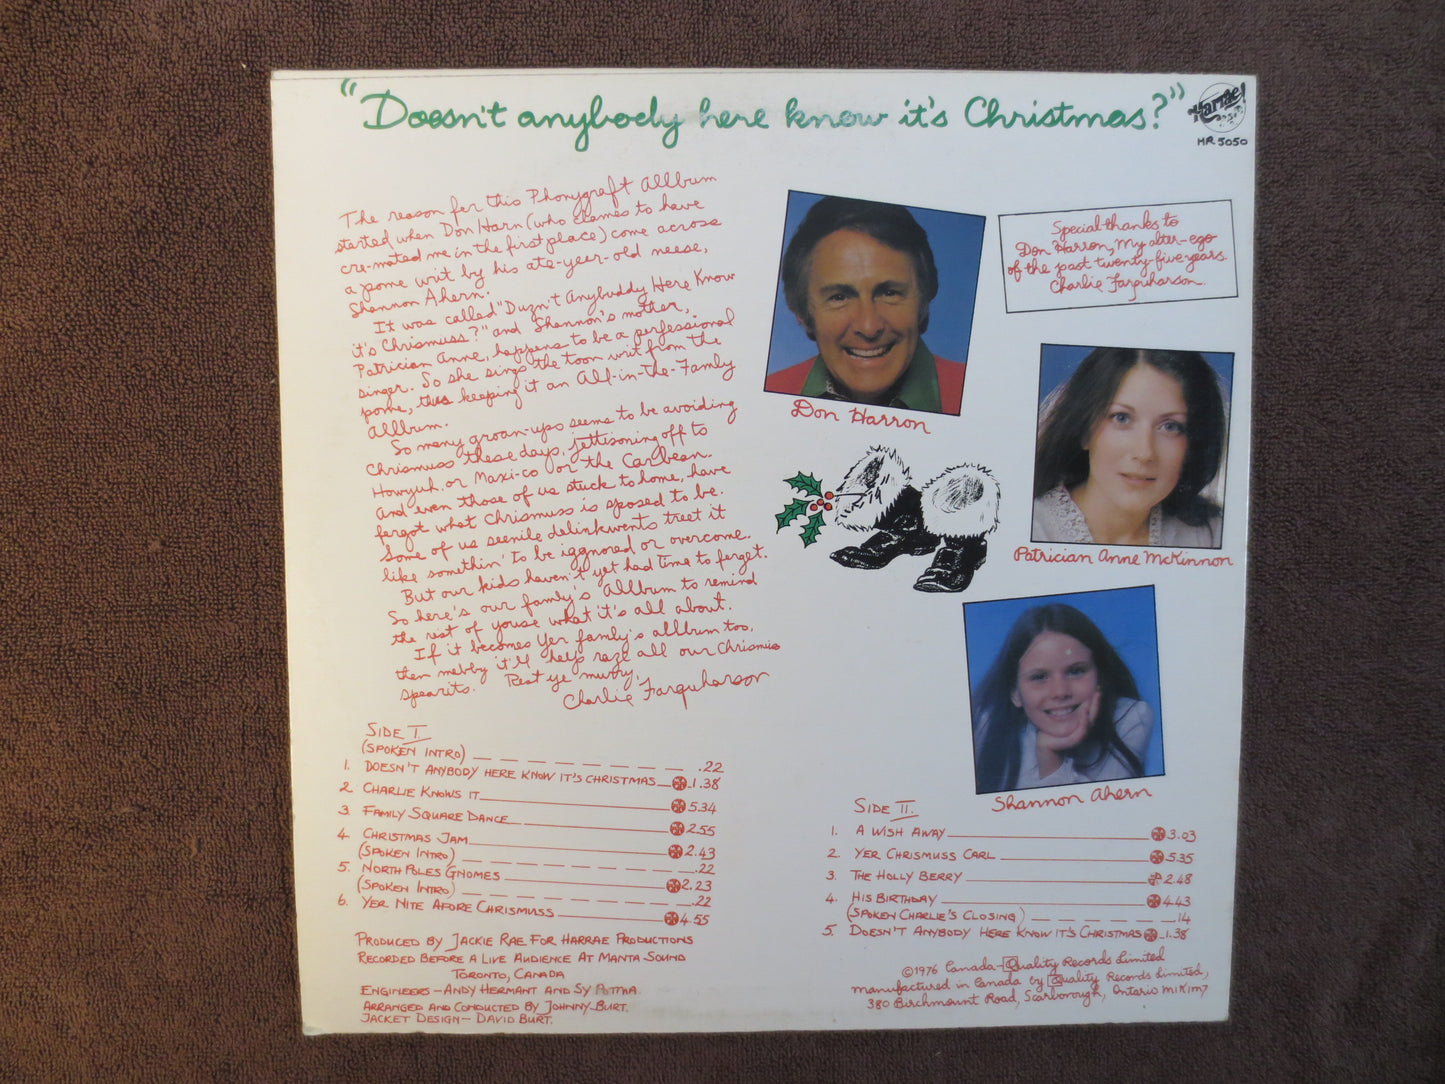 "Doesn't anybody here know it's Christmas?"
Harrae!
HR 5050
The reason for this Phonygraft Allbum
started when Don Harn (who clames to have
cre-mated me in the first place) come across
a pome writ by his ate-year-old neese,
Shannon Ahern.
It was called "Duzn't Anybuddy Here Know
it's Chrismuss?" and Shannon's mother,
Patrician Anne, happens to be a perfessional
singer. So she sings the toon writ from the
pome, thus keeping it an All-in-the-Famly
Allbum.
So many groan-ups seems to be avoiding
Chrismuss these days, jettisoning off to
Howyuh, or Maxi-co or the Carbean.
And even those of us stuck to home, have
fergot what Chrismuss is sposed to be.
Some of us seenile delinkwents treet it
like somethin' to be iggnored or overcome.
But our kids haven't yet had time to ferget.
So here's our famly's Allbum to remind
the rest of youse what it's all about.
If it becomes yer famly's allbum too,
then mebby it'll help raze all our Chrismuss
spearits. Rest ye murry,
Charlie Farquharson
Special thanks to
Don Harron, My alter-ego
of the past twenty-five years.
Charlie Farquharson.
Don Harron
Patrician Anne McKinnon
Shannon Ahern
SIDE I.
(SPOKEN INTRO) .22
1. DOESN'T ANYBODY HERE KNOW IT'S CHRISTMAS 1.38
2. CHARLIE KNOWS IT 5.34
3. FAMILY SQUARE DANCE 2.55
4. CHRISTMAS JAM 2.43
(SPOKEN INTRO) .22
5. NORTH POLES GNOMES 2.23
(SPOKEN INTRO) .22
6. YER NITE AFORE CHRISMUSS 4.55
PRODUCED BY JACKIE RAE FOR HARRAE PRODUCTIONS
RECORDED BEFORE A LIVE AUDIENCE AT MANTA SOUND
TORONTO, CANADA
ENGINEERS - ANDY HERMANT AND SY POTMA.
ARRANGED AND CONDUCTED BY JOHNNY BURT.
JACKET DESIGN - DAVID BURT.
SIDE II.
1. A WISH AWAY 3.03
2. YER CHRISMUSS CARL 5.35
3. THE HOLLY BERRY 2.48
4. HIS BIRTHDAY 4.43
(SPOKEN CHARLIE'S CLOSING) .14
5. DOESN'T ANYBODY HERE KNOW IT'S CHRISTMAS 1.38
©1976 Canada - Quality Records Limited
manufactured in Canada by Quality Records Limited,
380 Birchmount Road, Scarborough, Ontario M1K1M7